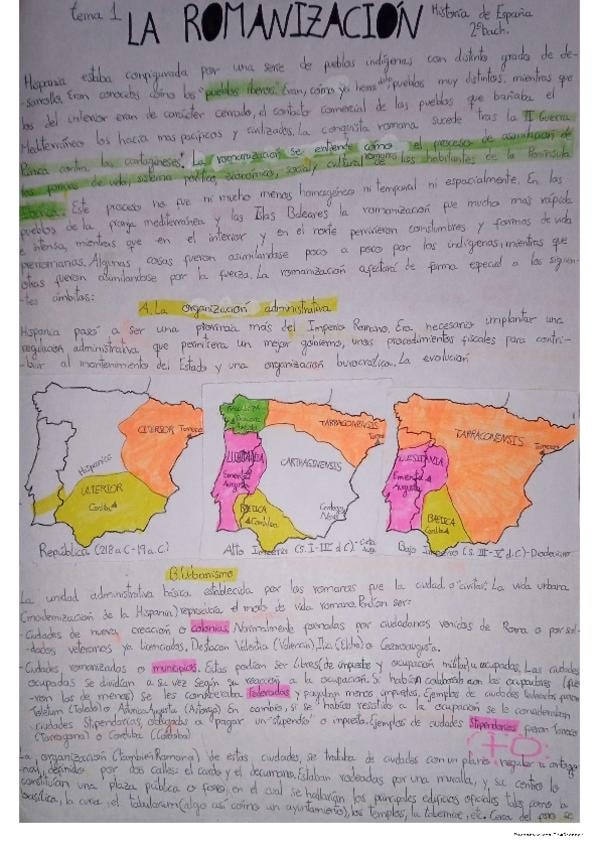 tema 1
LA ROMANIZACIÓN
Historia de España
2º bach.
Hispania estaba configurada por una serie de pueblos indígenas con distinto grado de de-
-sarrollo. Eran conocidos como los "pueblos iberos". Eran, como ya hemos pueblos muy distintos: mientras que
los del interior eran de carácter cerrado, el contacto comercial de los pueblos que bañaba el
Mediterráneo los hacía mas pacíficos y civilizados. La conquista romana sucede tras la II Guerra
Púnica contra los cartagineses. La romanización se entiende como el proceso de asimilación de
las formas de vida, sistema político, económicas, social y cultural romano de los habitantes de la Península
Ibérica. Este proceso no fue ni mucho menos homogéneo ni temporal ni espacialmente. En los
pueblos de la franja mediterránea y las Islas Baleares la romanización fue mucho mas rápida
e intensa, mientras que en el interior y en el norte pervivieron costumbres y formas de vida
prerromanas. Algunas cosas fueron asimilandose poco a poco por los indígenas, mientras que
otras fueron asimilandose por la fuerza. La romanización afectará de forma especial a los siguien-
-tes ámbitos:
A. La organización administrativa
Hispania pasó a ser una provincia más del Imperio Romano. Era necesario implantar una
regulación administrativa que permitiera un mejor gobierno, unos procedimientos fiscales para contri-
-buir al mantenimiento del Estado y una organización burocrática. La evolución
CITERIOR
Tarraco
Hispania
ULTERIOR
Corduba
República (218 a.C-19 a.C.)
TARRACONENSIS
LUSITANIA
Emerita
Augusta
CARTHAGINENSIS
BAETICA
Corduba
Cartago
Nova
Alto Imperio (s. I-III d.C)
TARRACONENSIS
Tarraco
LUSITANIA
Emerita
Augusta
BAETICA
Corduba
Bajo Imperio (s. III-V d.C)-Diocleciano
B. Urbanismo
La unidad administrativa básica establecida por los romanos fue la ciudad o "civitas". La vida urbana
(modernización de la Hispania) reproducía el modo de vida romano. Podían ser:
-Ciudades de nueva creación o colonias. Normalmente formadas por ciudadanos venidos de Roma o por sol-
-dados veteranos ya licenciados. Destacan Valentia (Valencia), Ilia (Elche) o Cesaraugusta.
-Ciudades romanizadas o municipios. Estas podían ser libres (de impuestos y ocupación militar) u ocupadas. Las ciudades
ocupadas se dividían a su vez según su reacción a la ocupación. Si habían colaborado con los ocupadores (fue-
-ron los de menos) se les consideraba federadas y pagaban menos impuestos. Ejemplos de ciudades federadas fueron
Toletum (Toledo) o (Astorga). En cambio, si se habían resistido a la ocupación se le consideraban
ciudades Stipendiarias, obligadas a pagar un "stipendio" o impuesto. Ejemplos de ciudades Stipendiarias fueron Tarraco
(Tarragona) o Corduba (Córdoba)
La organización (también Romana) de estas ciudades, se trataba de ciudades con un plano regular u ortogo-
-nal, definido por dos calles: el cardo y el documano. Estaban rodeadas por una muralla, y su centro lo
constituían una plaza pública o foro, en el cual se hallarían los principales edificios oficiales tales como la
basílica, la curia, el tabularium (algo así como un ayuntamiento), los templos, la tabernae, etc. Cerca del foro se